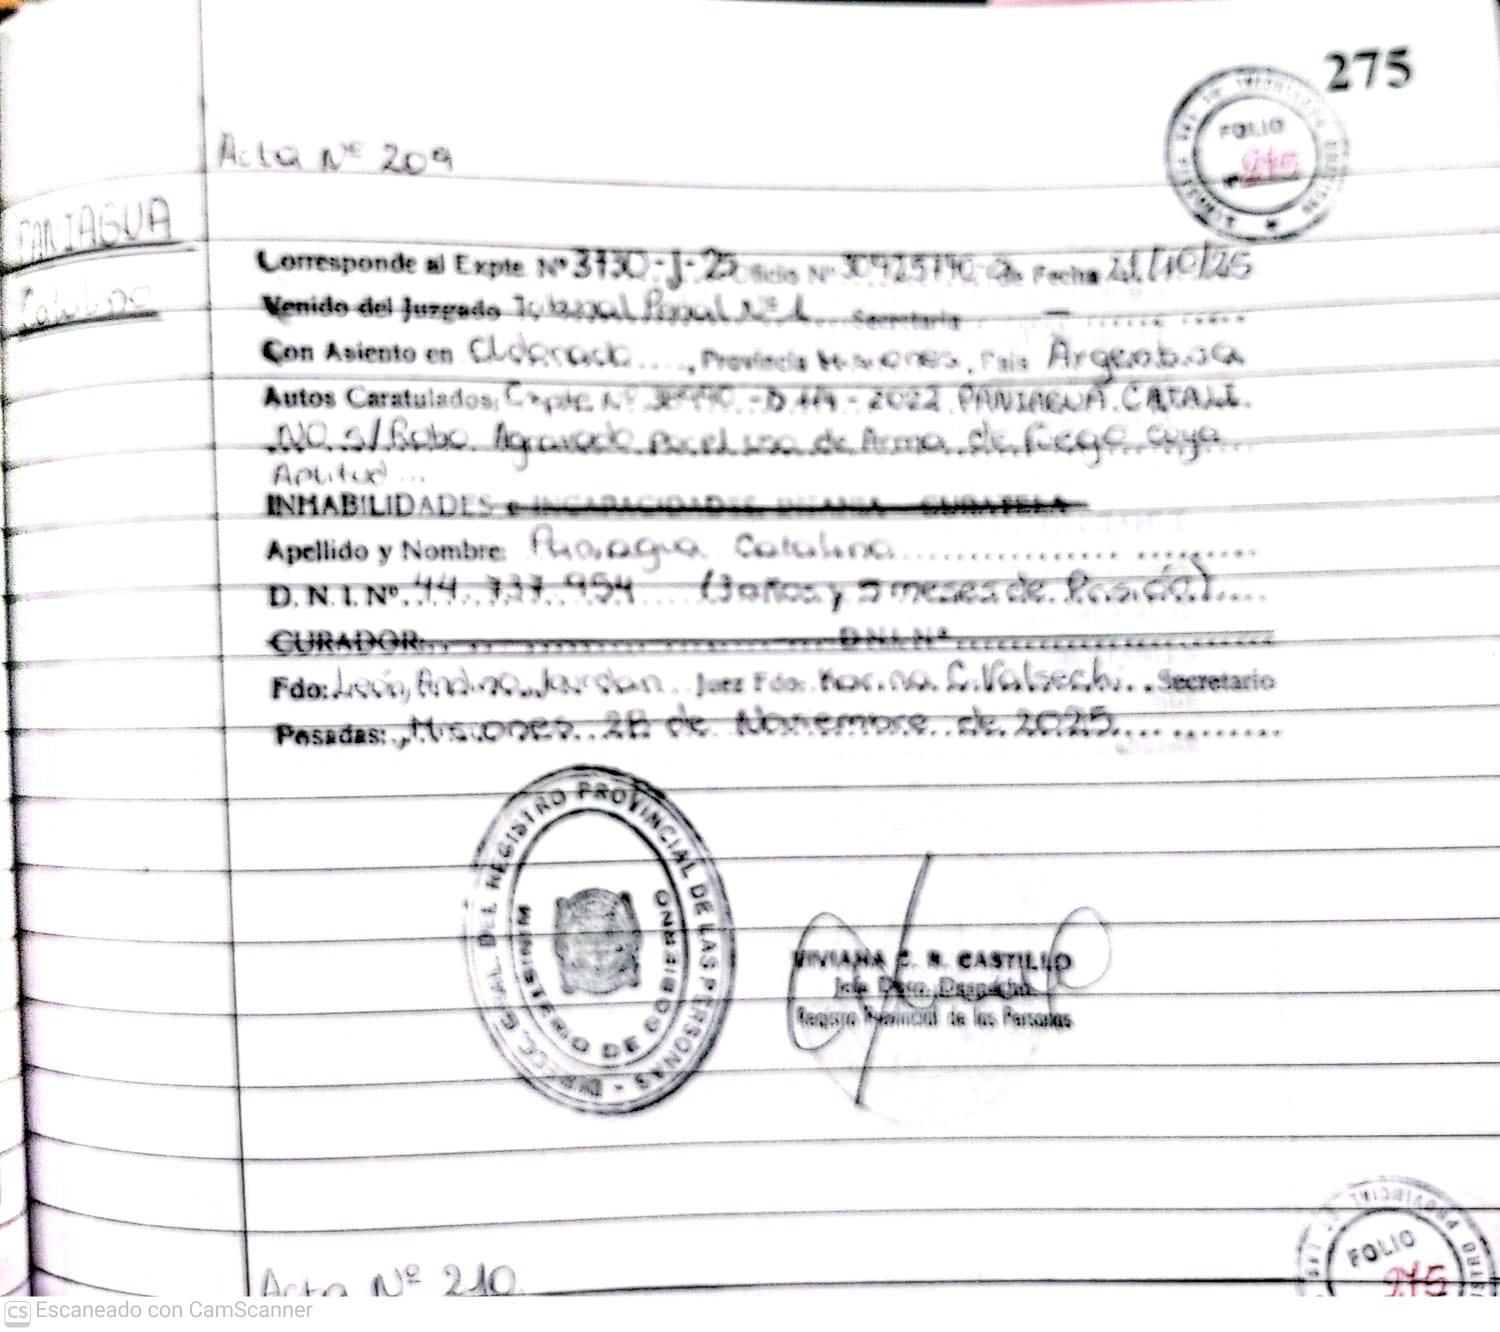 275
FOLIO
275
Acta Nº 209
PANIAGUA
Catalino
Corresponde al Expte Nº 3730-J-25 Oficio Nº de Fecha 21/10/25
Venido del Juzgado Tribunal Penal Nº 1 Secretaria —
Con Asiento en Eldorado...., Provincia Misiones, Pais Argentina
Autos Caratulados, Expte Nº - 2022 PANIAGUA CATALI
NO s/ Robo Agravado por el uso de Arma de Fuego cuya
Aptitud ...
INHABILIDADES e INCAPACIDADES INSANIA - CURATELA
Apellido y Nombre: Paniagua Catalino
D. N. I. Nº 44.737.954 (3 años y 5 meses de Prisión)
CURADOR: D.N.I. Nº
Fdo: León, Andino Jordan Juez Fdo: Karina C. Valsechi Secretario
Posadas:, Misiones 28 de Noviembre de 2025
DIRECC. GRAL. DEL REGISTRO PROVINCIAL DE LAS PERSONAS -
MINISTERIO DE GOBIERNO
VIVIANA C. R. CASTILLO
Jefe Dpto. Despacho
Registro Provincial de las Personas
FOLIO
275
Acta Nº 210
CS Escaneado con CamScanner